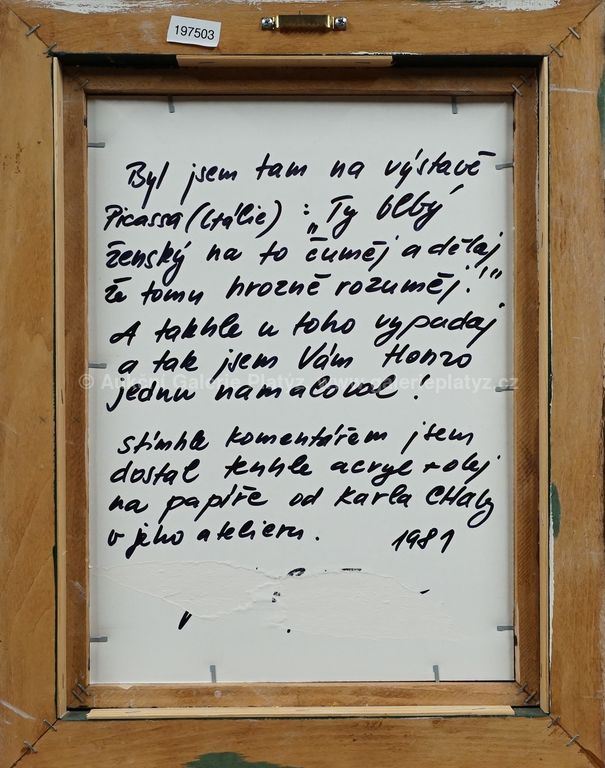 197503
Byl jsem tam na výstavě
Picassa (Itálie) : „Ty blbý
ženský na to čuměj a dělaj
že tomu hrozně rozuměj!"
A takhle u toho vypadaj
a tak jsem Vám Honzo
jednu namaloval!
© Aukční Galerie Platýz, www.galerieplatyz.cz
stímhle komentářem jsem
dostal tenhle acryl + olej
na papíře od Karla Chaby
v jeho atelieru. 1981